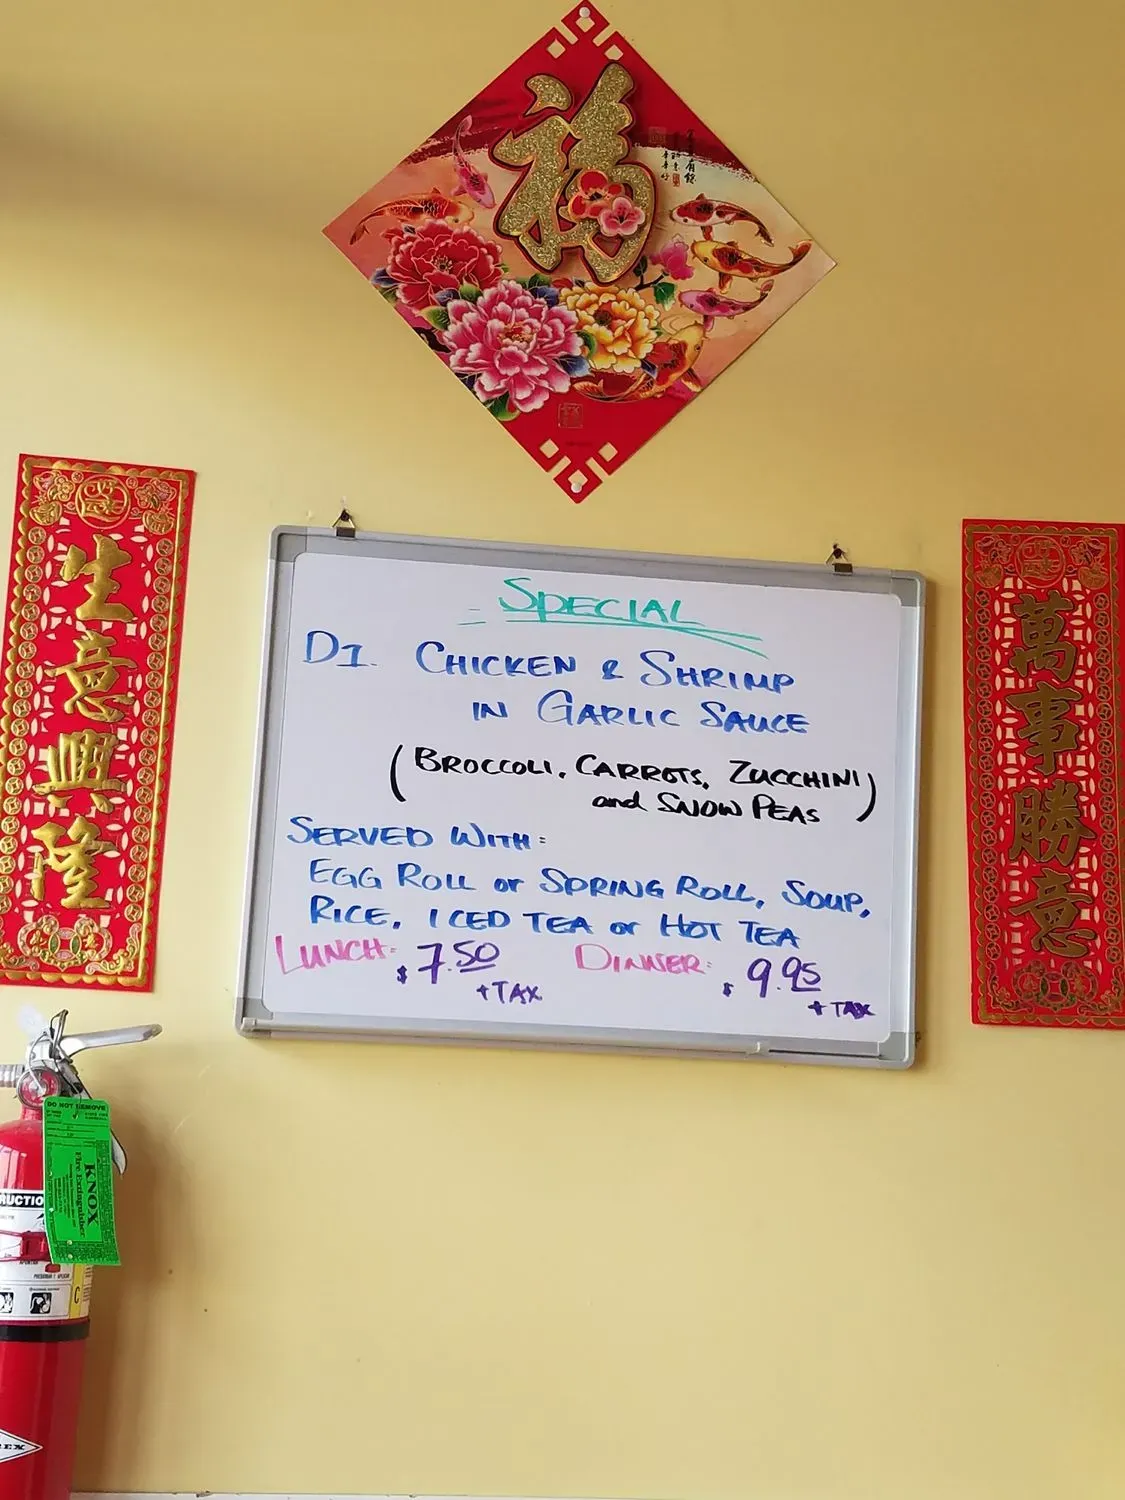 福
生意興隆
萬事勝意
SPECIAL
D1. CHICKEN & SHRIMP
IN GARLIC SAUCE
(BROCCOLI, CARROTS, ZUCCHINI
and SNOW PEAS)
SERVED WITH:
EGG ROLL or SPRING ROLL, SOUP,
RICE, ICED TEA or HOT TEA
LUNCH: $7.50 DINNER: $9.95
+TAX +TAX
DO NOT REMOVE
KNOX
Fire Extinguisher